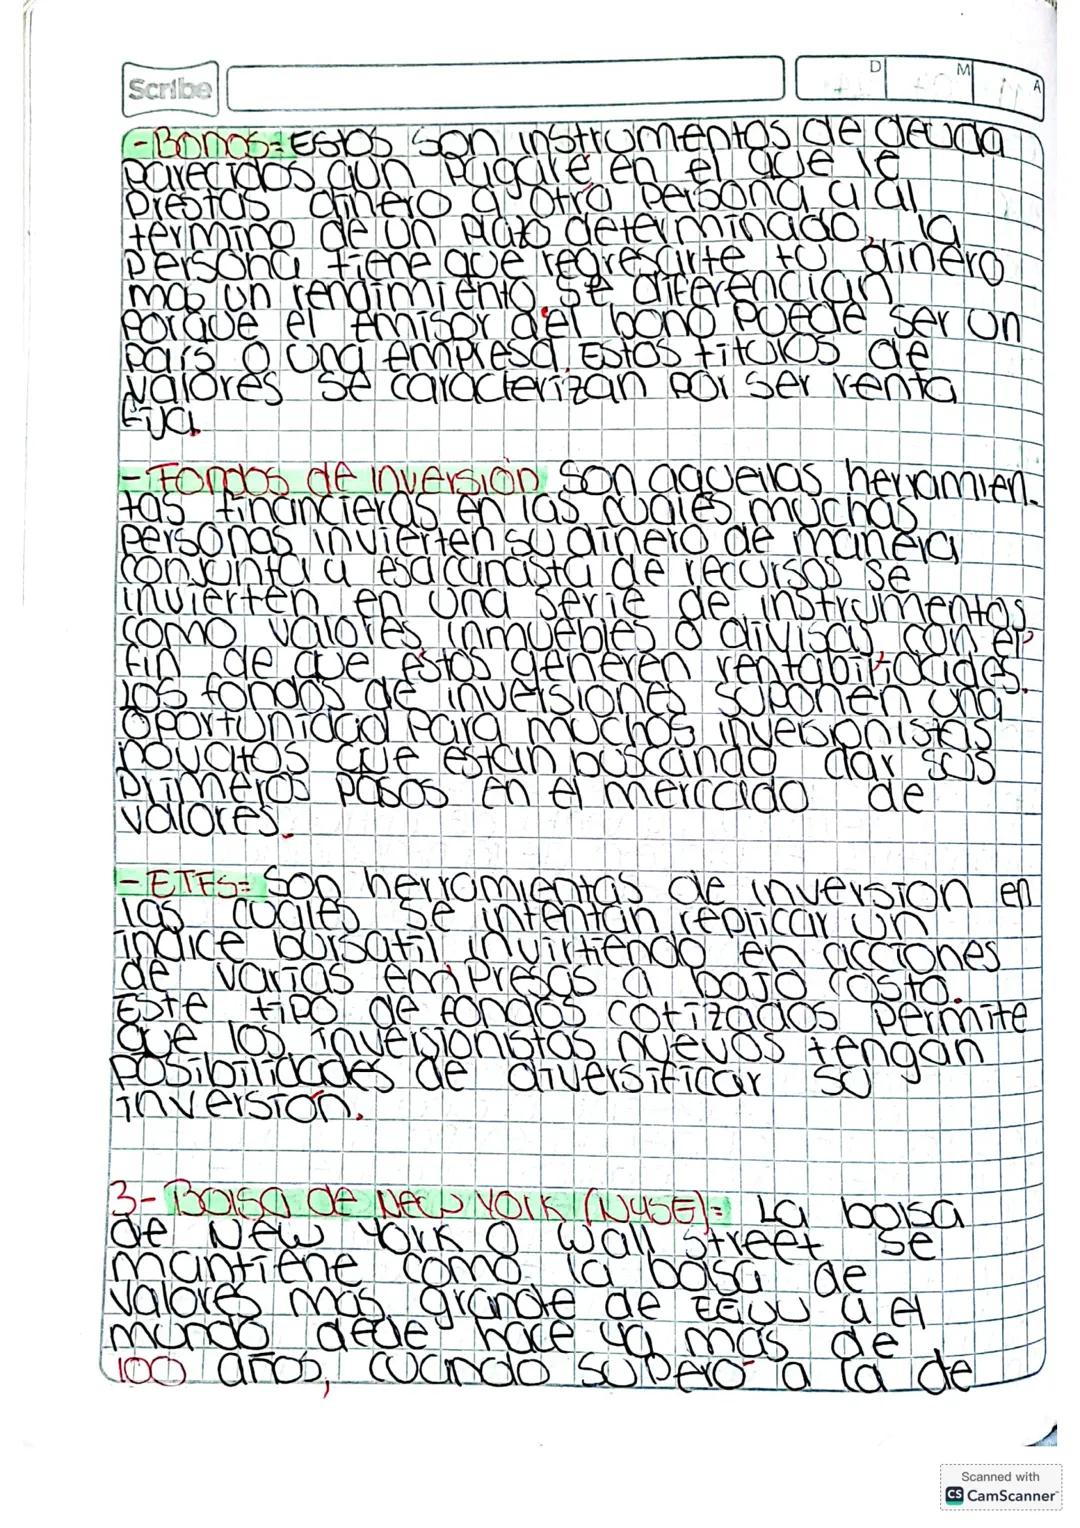 Scribe
D M A
-Bonos= Estos son instrumentos de deuda
parecidos aun Pagaré en el que le
prestas dinero a otra persona y al
termino de un plazo determinado, la
persona tiene que regresarte tu dinero
mas un rendimiento se diferencian
porque el emisor del bono puede ser un
país o una empresa. Estos titulos de
valores se caracterizan por ser renta
fija.
-Fondos de inversión Son aquellas herramien-
tas financieras en las cuales muchas
personas invierten su dinero de manera
conjunta y esa canasta de recursos se
invierten en una serie de instrumentos
como valores inmuebles o divisas, con el
fin de que estos generen rentabilidades.
los fondos de inversiones suponen una
oportunidad para muchos inversionistas
novatos que estan buscando dar sus
primeros pasos en el mercado de
valores.
-ETFS= Son herramientas de inversion en
las cuales se intentan replicar un
indice bursatil invirtiendo en acciones
de varias empresas a bajo costo.
Este tipo de fondos cotizados permite
que los inversionistas nuevos tengan
posibilidades de diversificar su
inversión.
3- Bolsa de New York (NYSE)= La bolsa
de New York o Wall Street se
mantiene como la bolsa de
valores mas grande de EEUU y el
mundo dede hace ya mas de
100 años, cuando supero a la de
Scanned with
CS CamScanner